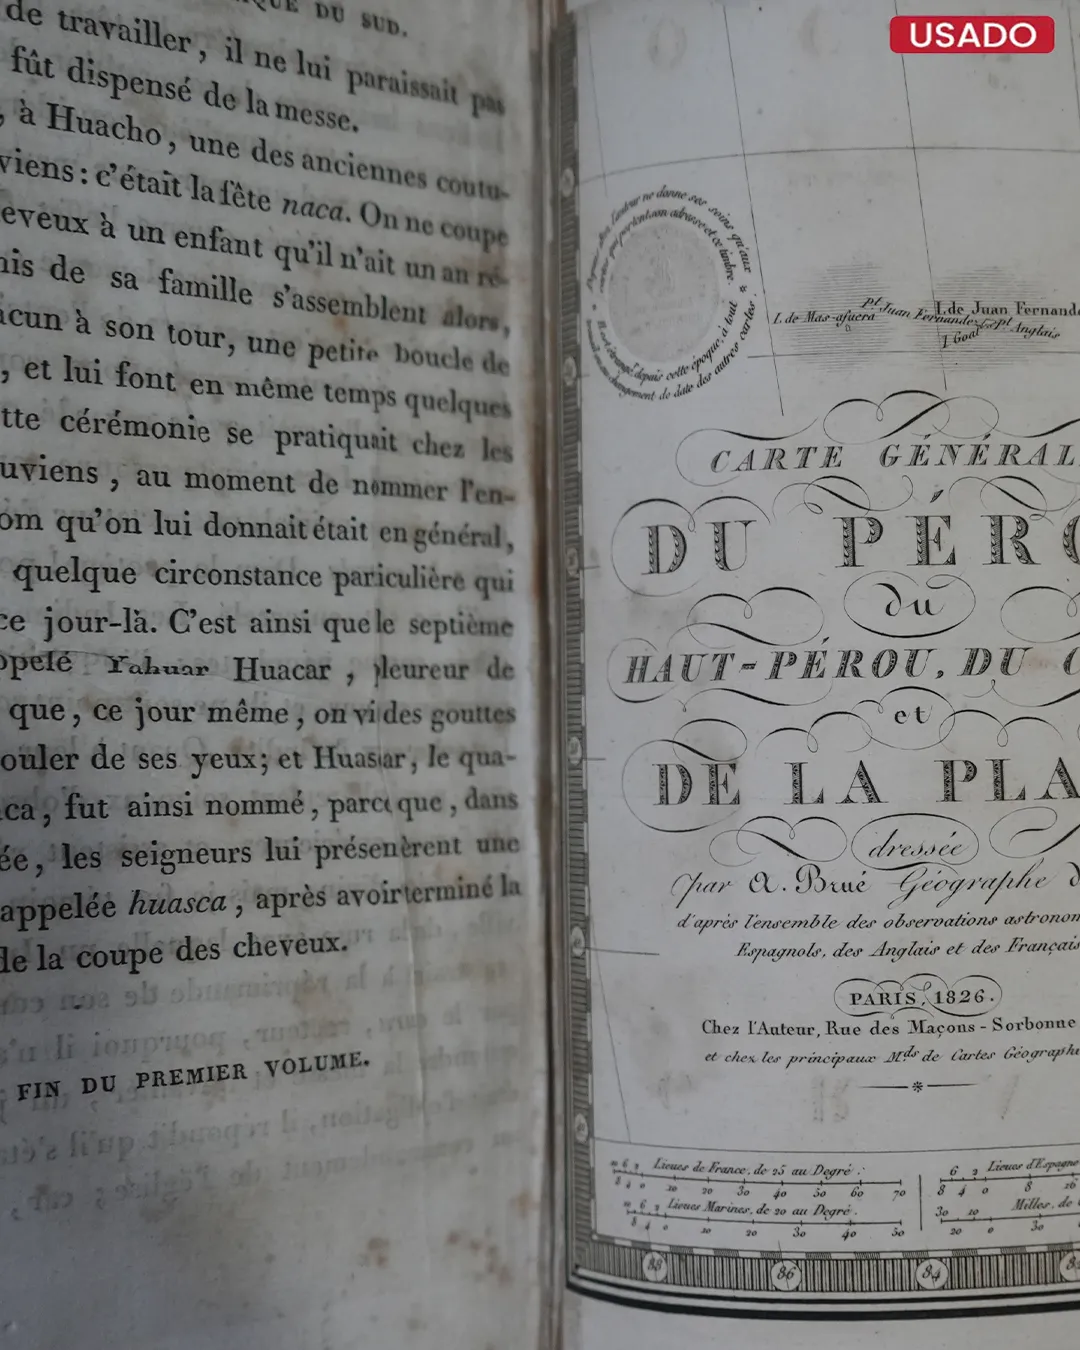 QUE DU SUD.
de travailler, il ne lui paraissait pas
fût dispensé de la messe.
, à Huacho, une des anciennes coutu-
viens: c'était la fête naca. On ne coupe
eveux à un enfant qu'il n'ait un an ré-
nis de sa famille s'assemblent alors,
acun à son tour, une petite boucle de
, et lui font en même temps quelques
tte cérémonie se pratiquait chez les
uviens, au moment de nommer l'en-
om qu'on lui donnait était en général,
quelque circonstance pariculière qui
ce jour-là. C'est ainsi que le septième
ppelé Yahuar Huacar, pleureur de
que, ce jour même, on vi des gouttes
ouler de ses yeux; et Huascar, le qua-
ca, fut ainsi nommé, parce que, dans
ée, les seigneurs lui présenèrent une
appelée huasca, après avoir terminé la
de la coupe des cheveux.
FIN DU PREMIER VOLUME.
USADO
l'auteur ne donne ses soins qu'aux
cartes qui portent son adresse et ce timbre.
depuis cette époque, à tout
changement de date des autres cartes.
I. de Mas-afuera
Pt. Juan Fernandez
I. de Juan Fernand
Pt. Anglais
I. Goat
CARTE GÉNÉRAL
DU PÉRO
du
HAUT-PÉROU, DU C
et
DE LA PLA
dressée
par A. Brué Géographe d
d'après l'ensemble des observations astronom
Espagnols, des Anglais et des Français
PARIS, 1826.
Chez l'Auteur, Rue des Maçons-Sorbonne
et chez les principaux Mds de Cartes Géographi
Lieues de France, de 25 au Degré.
8 4 0 10 20 30 40 50 60 70
Lieues Marines, de 20 au Degré.
8 4 0 10 20 30 40 50
6 2 Lieues d'Espagne
8 4 0 8 16
30 10 Milles, de
20 0 30
88 86 84 82